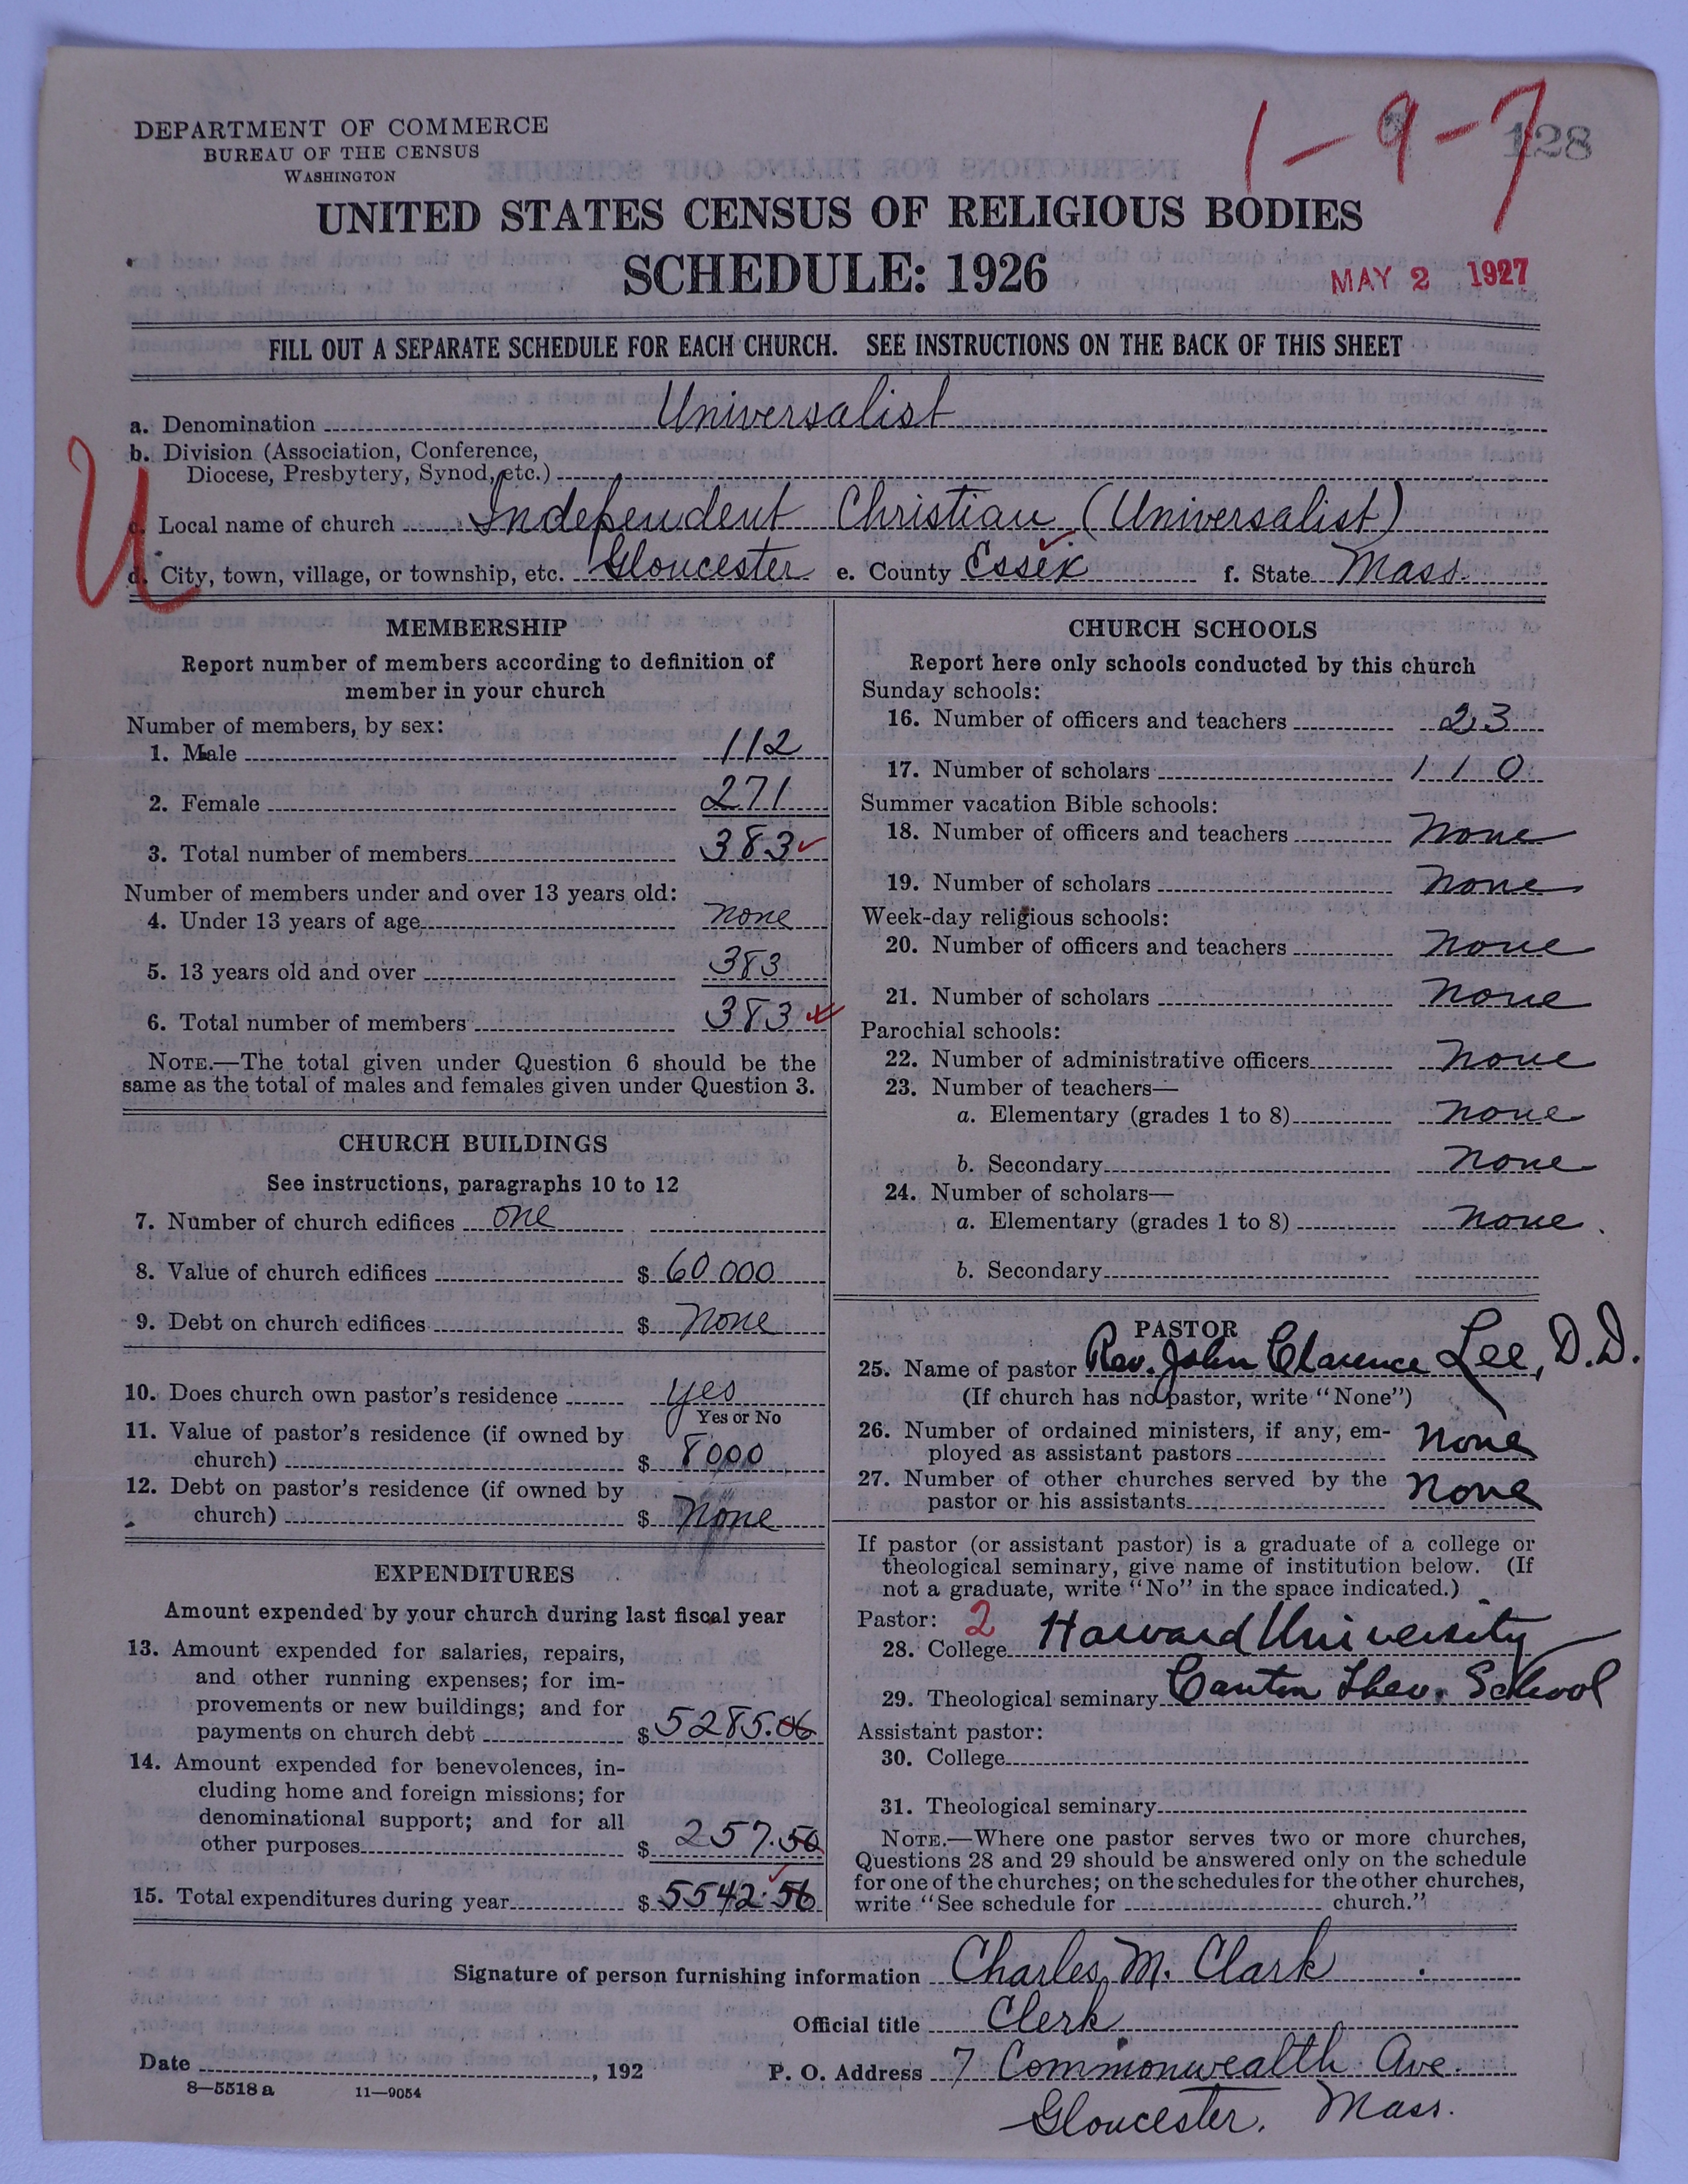 DEPARTMENT OF COMMERCE
BUREAU OF THE CENSUS
WASHINGTON
1-9-7
128
UNITED STATES CENSUS OF RELIGIOUS BODIES
SCHEDULE: 1926
MAY 2 1927
FILL OUT A SEPARATE SCHEDULE FOR EACH CHURCH. SEE INSTRUCTIONS ON THE BACK OF THIS SHEET
U
a. Denomination Universalist
b. Division (Association, Conference,
Diocese, Presbytery, Synod, etc.)
c. Local name of church Independent Christian (Universalist)
d. City, town, village, or township, etc. Gloucester e. County Essex f. State Mass.
MEMBERSHIP
Report number of members according to definition of
member in your church
Number of members, by sex:
1. Male 112
2. Female 271
3. Total number of members 383
Number of members under and over 13 years old:
4. Under 13 years of age none
5. 13 years old and over 383
6. Total number of members 383
NOTE.—The total given under Question 6 should be the
same as the total of males and females given under Question 3.
CHURCH BUILDINGS
See instructions, paragraphs 10 to 12
7. Number of church edifices one
8. Value of church edifices $ 60 000
9. Debt on church edifices $ None
10. Does church own pastor's residence yes
Yes or No
11. Value of pastor's residence (if owned by
church) $ 8000
12. Debt on pastor's residence (if owned by
church) $ None
EXPENDITURES
Amount expended by your church during last fiscal year
13. Amount expended for salaries, repairs,
and other running expenses; for im-
provements or new buildings; and for
payments on church debt $ 5285.06
14. Amount expended for benevolences, in-
cluding home and foreign missions; for
denominational support; and for all
other purposes $ 257.50
15. Total expenditures during year $ 5542.56
CHURCH SCHOOLS
Report here only schools conducted by this church
Sunday schools:
16. Number of officers and teachers 23
17. Number of scholars 110
Summer vacation Bible schools:
18. Number of officers and teachers None
19. Number of scholars None
Week-day religious schools:
20. Number of officers and teachers None
21. Number of scholars None
Parochial schools:
22. Number of administrative officers None
23. Number of teachers—
a. Elementary (grades 1 to 8) None
b. Secondary None
24. Number of scholars—
a. Elementary (grades 1 to 8) None
b. Secondary
PASTOR
25. Name of pastor Rev. John Clarence Lee, D.D.
(If church has no pastor, write "None")
26. Number of ordained ministers, if any, em-
ployed as assistant pastors None
27. Number of other churches served by the
pastor or his assistants None
If pastor (or assistant pastor) is a graduate of a college or
theological seminary, give name of institution below. (If
not a graduate, write "No" in the space indicated.)
Pastor: 2
28. College Harvard University
29. Theological seminary Canton Theo. School
Assistant pastor:
30. College
31. Theological seminary
NOTE.—Where one pastor serves two or more churches,
Questions 28 and 29 should be answered only on the schedule
for one of the churches; on the schedules for the other churches,
write "See schedule for church."
Signature of person furnishing information Charles M. Clark
Official title Clerk
Date , 192 P. O. Address 7 Commonwealth Ave.
8—5518 a 11—9054
Gloucester, Mass.